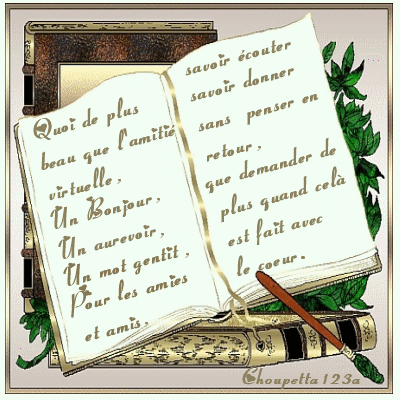 Quoi de plus
beau que l'amitié
virtuelle,
Un Bonjour,
Un aurevoir,
Un mot gentil,
Pour les amies
et amis,
savoir écouter
savoir donner
sans penser en
retour,
que demander de
plus quand celà
est fait avec
le coeur.
Choupetta123a